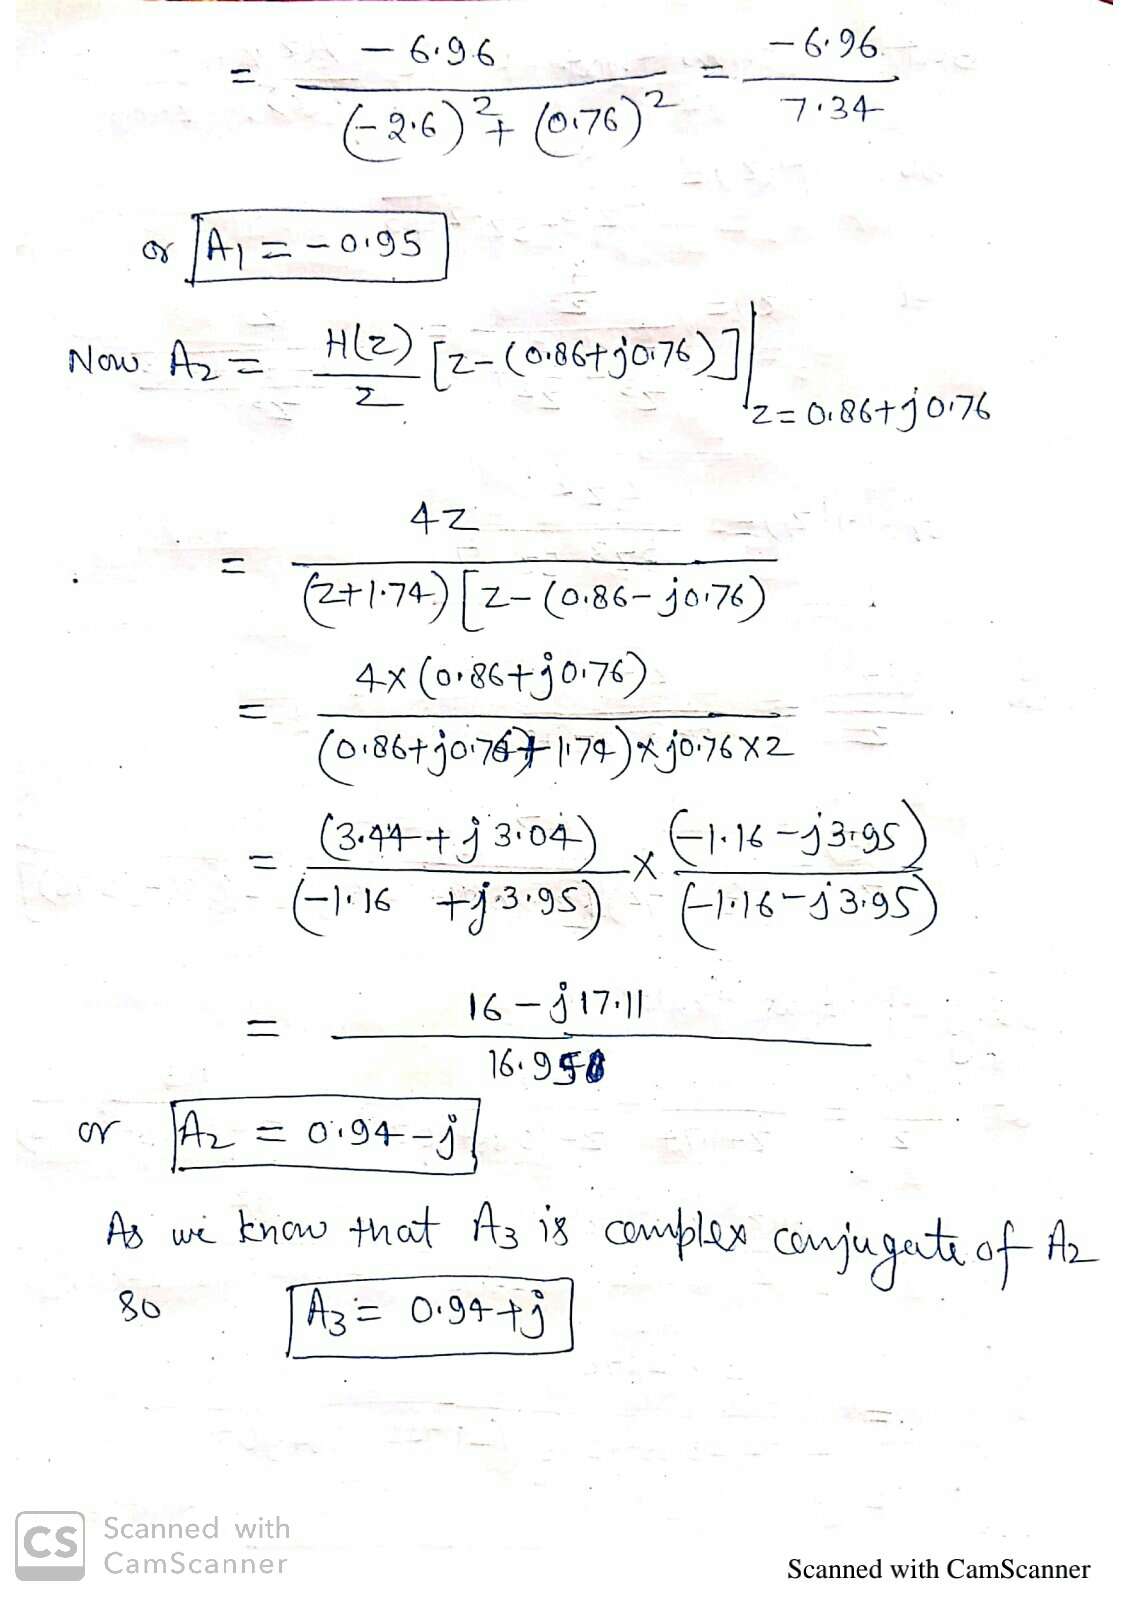 = - 6.96 / (-2.6)² + (0.76)² = -6.96 / 7.34
or A₁ = -0.95
Now A₂ = H(z)/z [z-(0.86+j0.76)] |z=0.86+j0.76
= 4z / (z+1.74)[z-(0.86-j0.76)
= 4x(0.86+j0.76) / (0.86+j0.76+1.74)xj0.76x2
= (3.44+j3.04) / (-1.16 +j3.95) x (-1.16-j3.95) / (-1.16-j3.95)
= 16-j17.11 / 16.950
or A₂ = 0.94-j
As we know that A₃ is complex conjugate of A₂
so A₃ = 0.94+j
CS Scanned with
CamScanner
Scanned with CamScanner